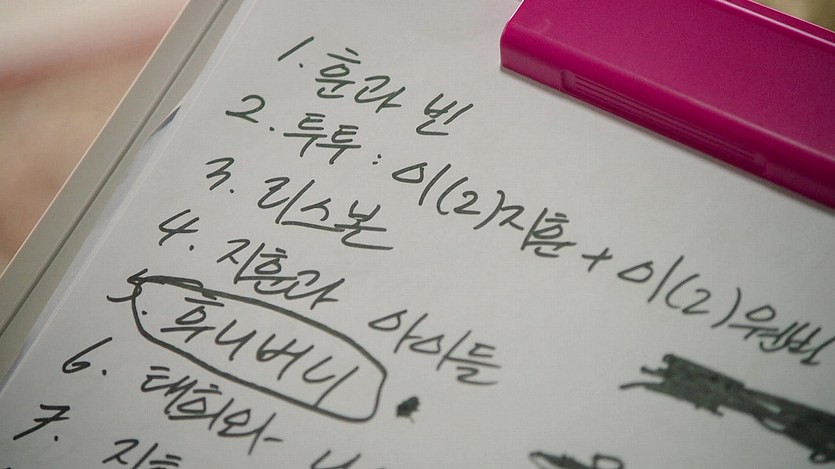 1. 훈과 빈
2. 투투 : 이(2)지훈 + 이(2)원빈
3. 리스본
4. 지훈과 아이들
5. 후니버니
6. 태희와
7. 지훈